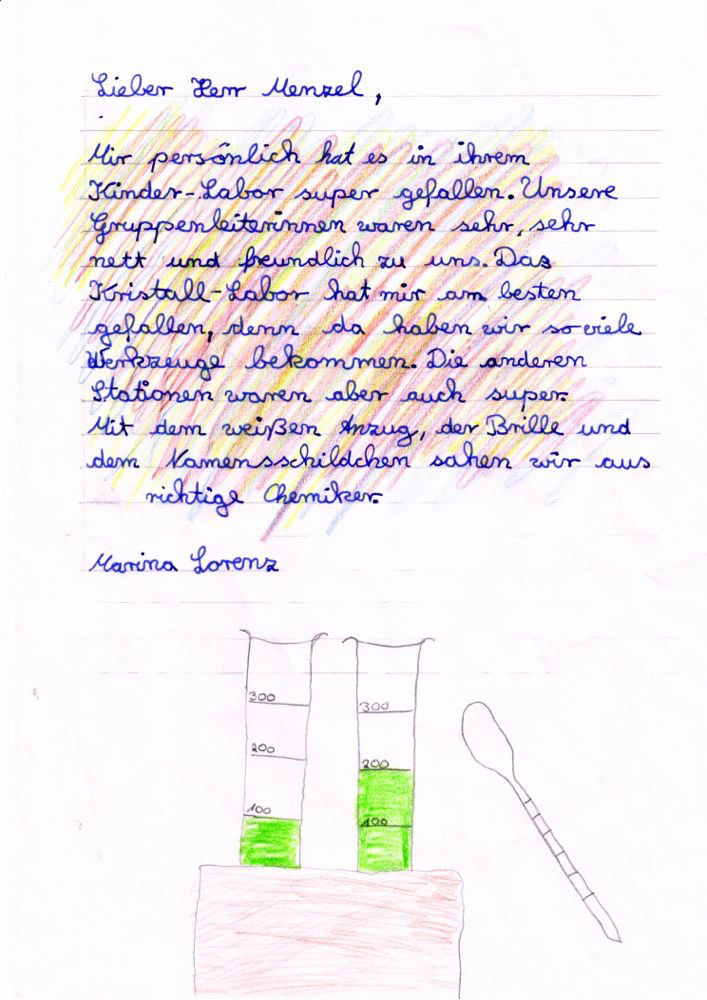 Lieber Herr Menzel,
Mir persönlich hat es in ihrem
Kinder-Labor super gefallen. Unsere
Gruppenleiterinnen waren sehr, sehr
nett und freundlich zu uns. Das
Kristall-Labor hat mir am besten
gefallen, denn da haben wir so viele
Werkzeuge bekommen. Die anderen
Stationen waren aber auch super.
Mit dem weißen Anzug, der Brille und
dem Namensschildchen sahen wir aus
richtige Chemiker.
Marina Lorenz
300
200
100
300
200
100